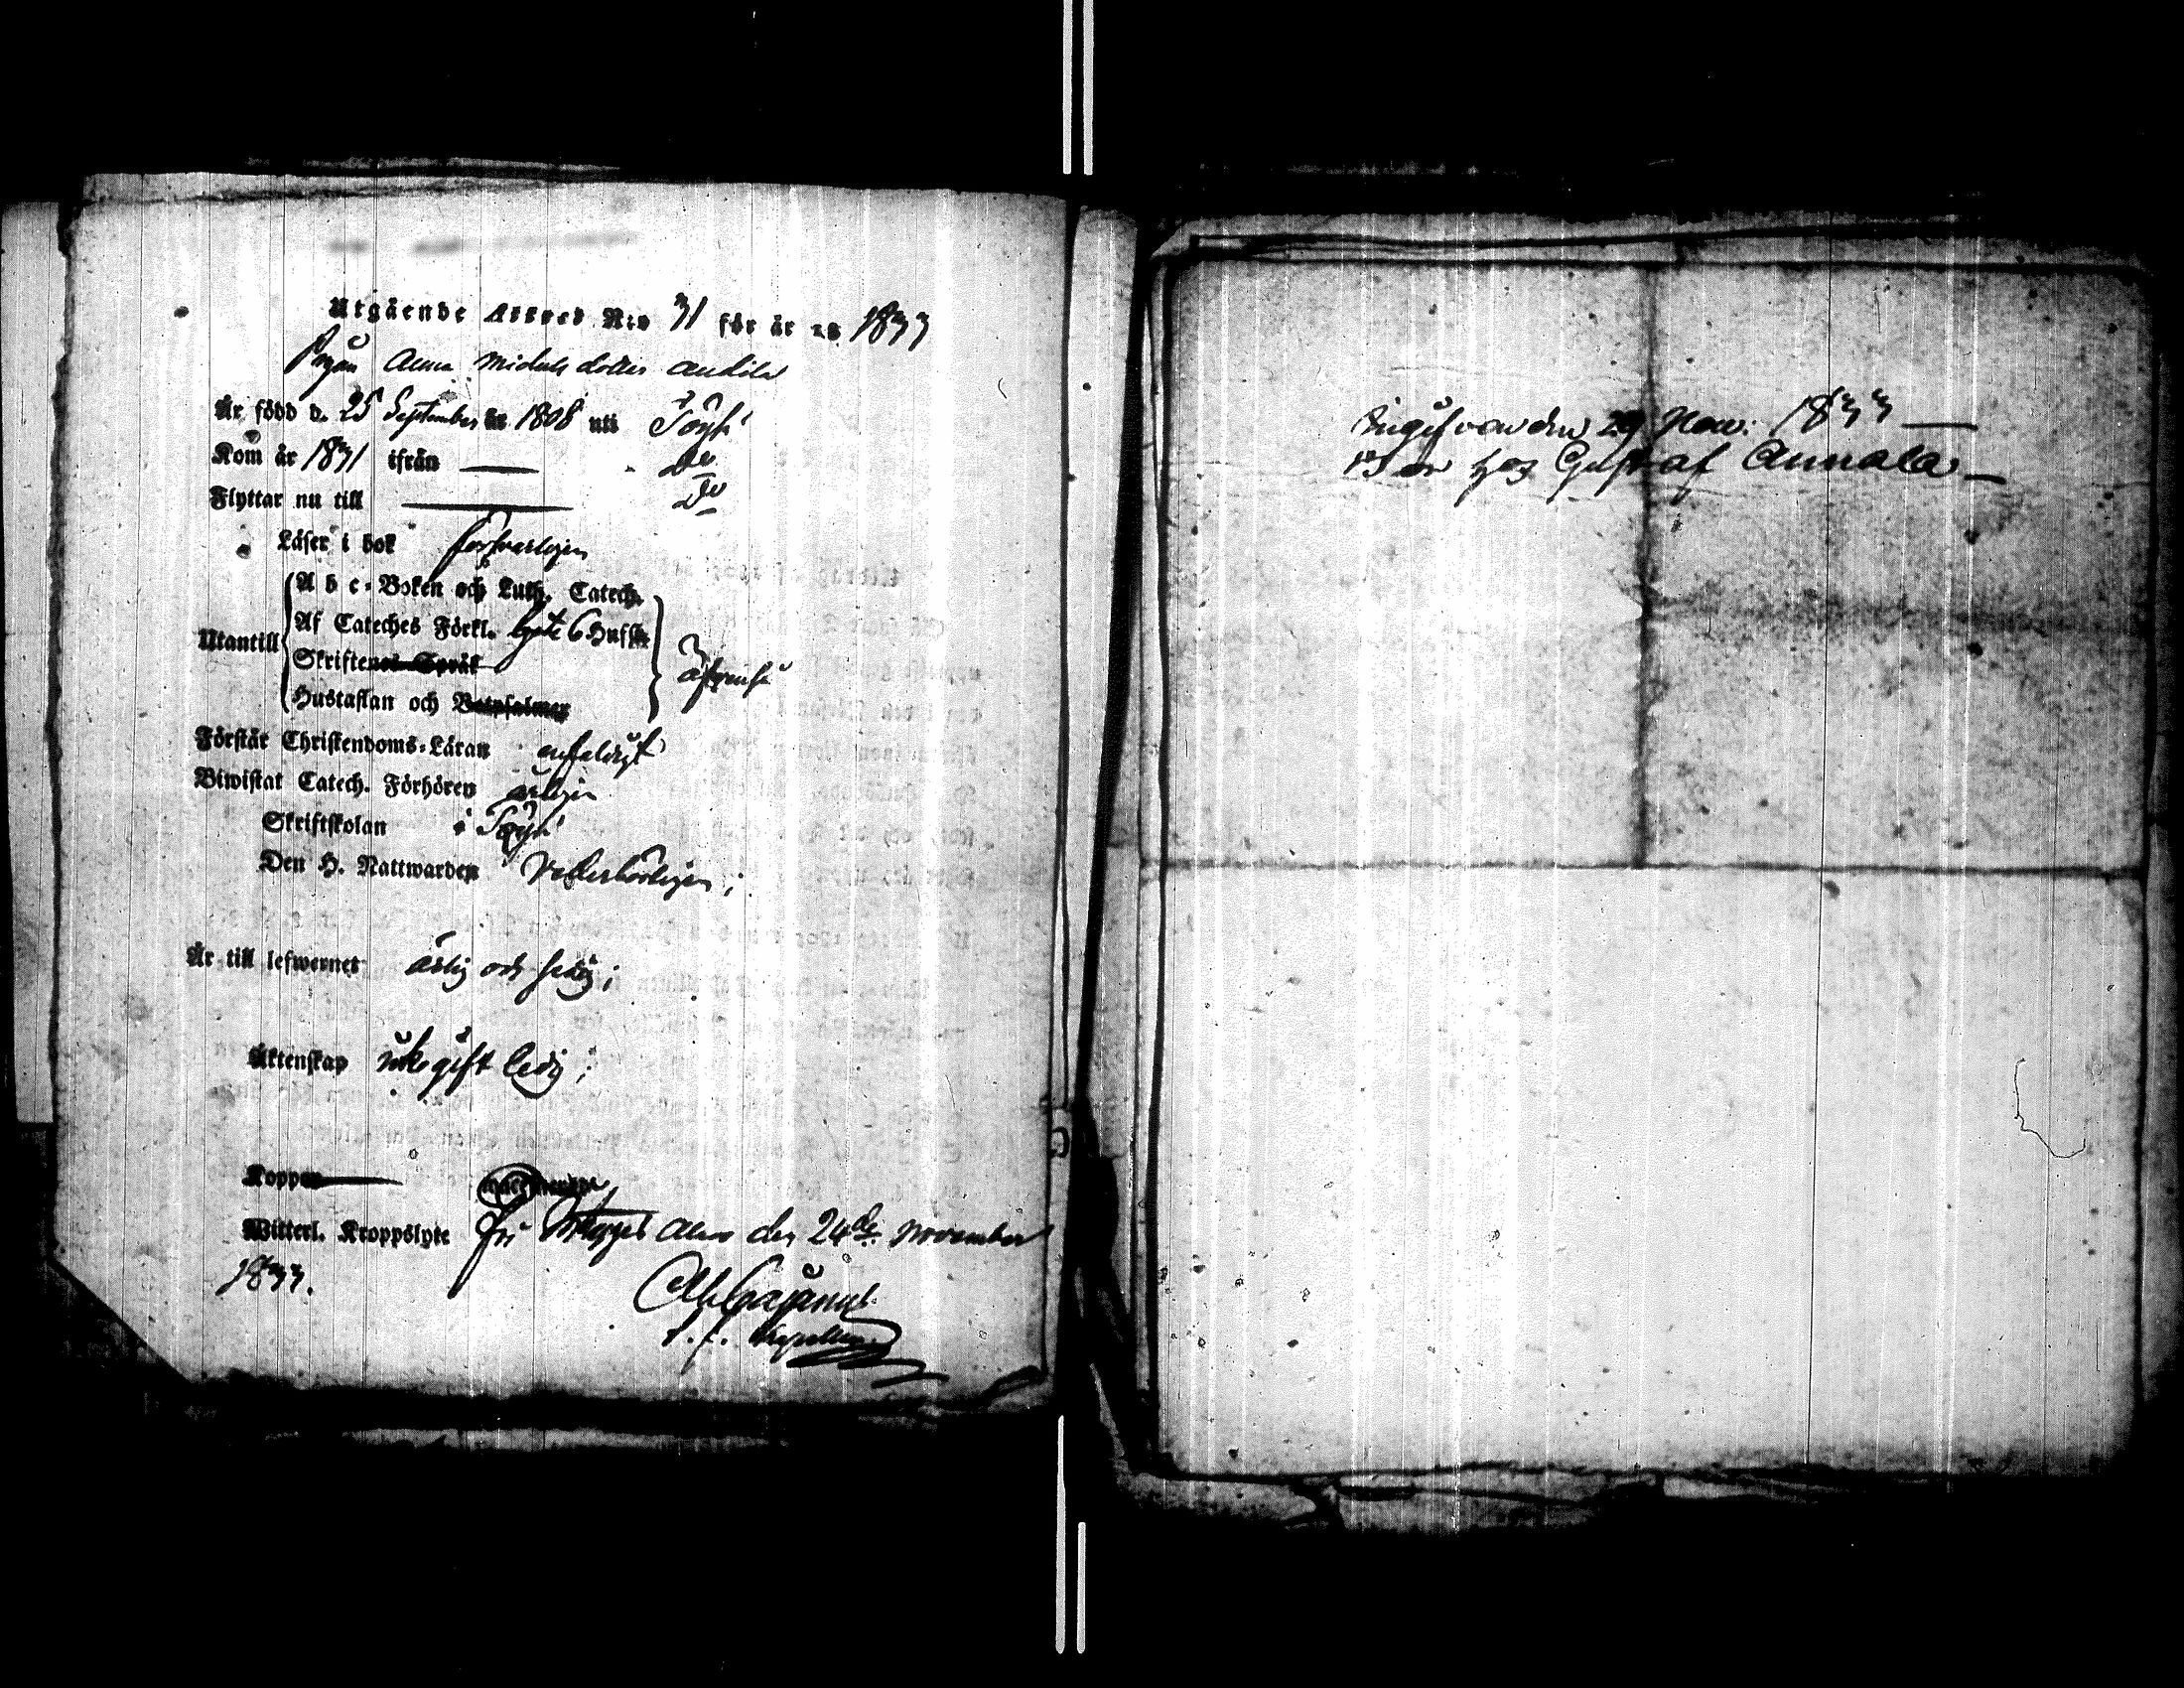 Utgående Attest N:o 31 för år 1833
Pigan Anna Michelsdotter
Är född d. 25 September år 1808 uti Töysä
Kom år 1831 ifrån — D:o
Flyttar nu till — D:o
Läser i bok försvarligen
Utantill
A b c-Boken och Luth. Catech.
Af Cateches Förkl. 6 Hufst.
Skriftenes Språk
Hustaflan och Botpsalmer
Förstår Christendoms-Läran enfaldigt
Biwistat Catech. Förhören årligen
Skriftskolan i Töysä
Den H. Nattwarden vederbörligen;
Är till lefwernet ärlig och sedig;
Äktenskap icke gift ledig;
Koppor
Witterl. Kroppslyte fri intygas Alavo den 24de November
1833.
Ab Cajanus
v. f. Capellan
Ingifvan den 29 Nov: 1833 —
hos Gustaf Annala —